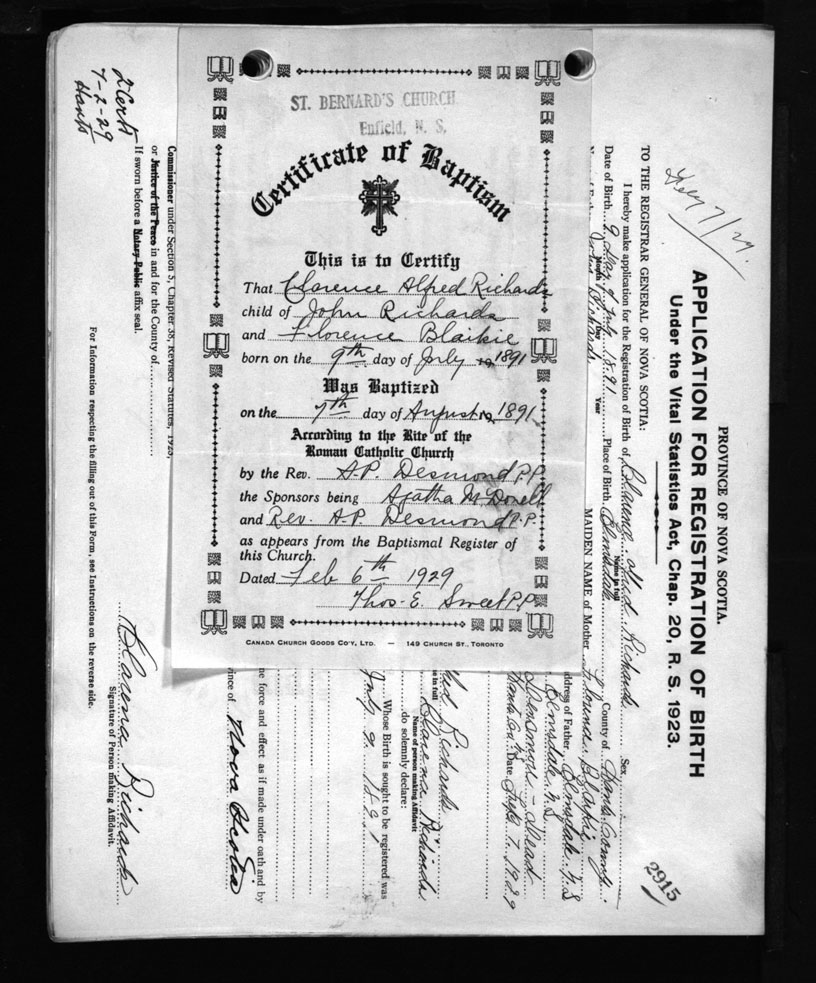 ST. BERNARD'S CHURCH
Enfield, N. S.
Certificate of Baptism
This is to Certify
That Clarence Alfred Richards
child of John Richards
and Florence Blaikie
born on the 9th day of July 19 1891
Was Baptized
on the 7th day of August 19 1891
According to the Rite of the
Roman Catholic Church
by the Rev. A.P. Desmond P.P.
the Sponsors being Agatha McDonell
and Rev. A.P. Desmond P.P.
as appears from the Baptismal Register of
this Church.
Dated Feb 6th 1929
Thos. E. Sweet P.P.
CANADA CHURCH GOODS CO'Y, LTD. — 149 CHURCH ST., TORONTO
7/29.
PROVINCE OF NOVA SCOTIA.
APPLICATION FOR REGISTRATION OF BIRTH
Under the Vital Statistics Act, Chap. 20, R. S. 1923.
2915
TO THE REGISTRAR GENERAL OF NOVA SCOTIA:
I hereby make application for the Registration of Birth of Clarence Alfred Richards Sex
Name in full
Date of Birth 9 day of July 1891 Place of Birth Elmsdale County of Hants County
Month Day Year
MAIDEN NAME of Mother Blaikie
Address of Father Elmsdale N.S
Elmsdale N.S
Dead
Date 7 1929
Richards
in full
Clarence Richards
Name of person making Affidavit
do solemnly declare:
Whose Birth is sought to be registered was
July 9 1891
me force and effect as if made under oath and by
vince of Nova Scotia
Commissioner under Section 3, Chapter 38, Revised Statutes, 1923,
or Justice of the Peace in and for the County of
If sworn before a Notary Public affix seal.
Clarence Richards
Signature of Person making Affidavit.
For Information respecting the filling out of this Form, see Instructions on the reverse side.
7-2-29
Hants